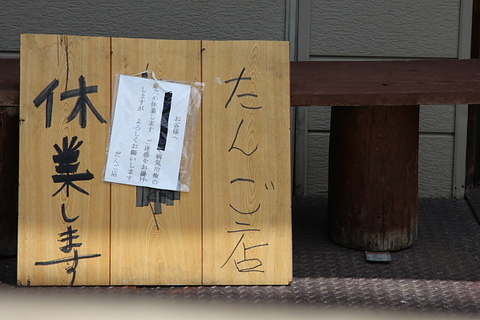 だんご店
休業します
お客様へ
病気治療の
為、休業します ご迷惑をお掛け
しますが よろしくお願いします
だんご店